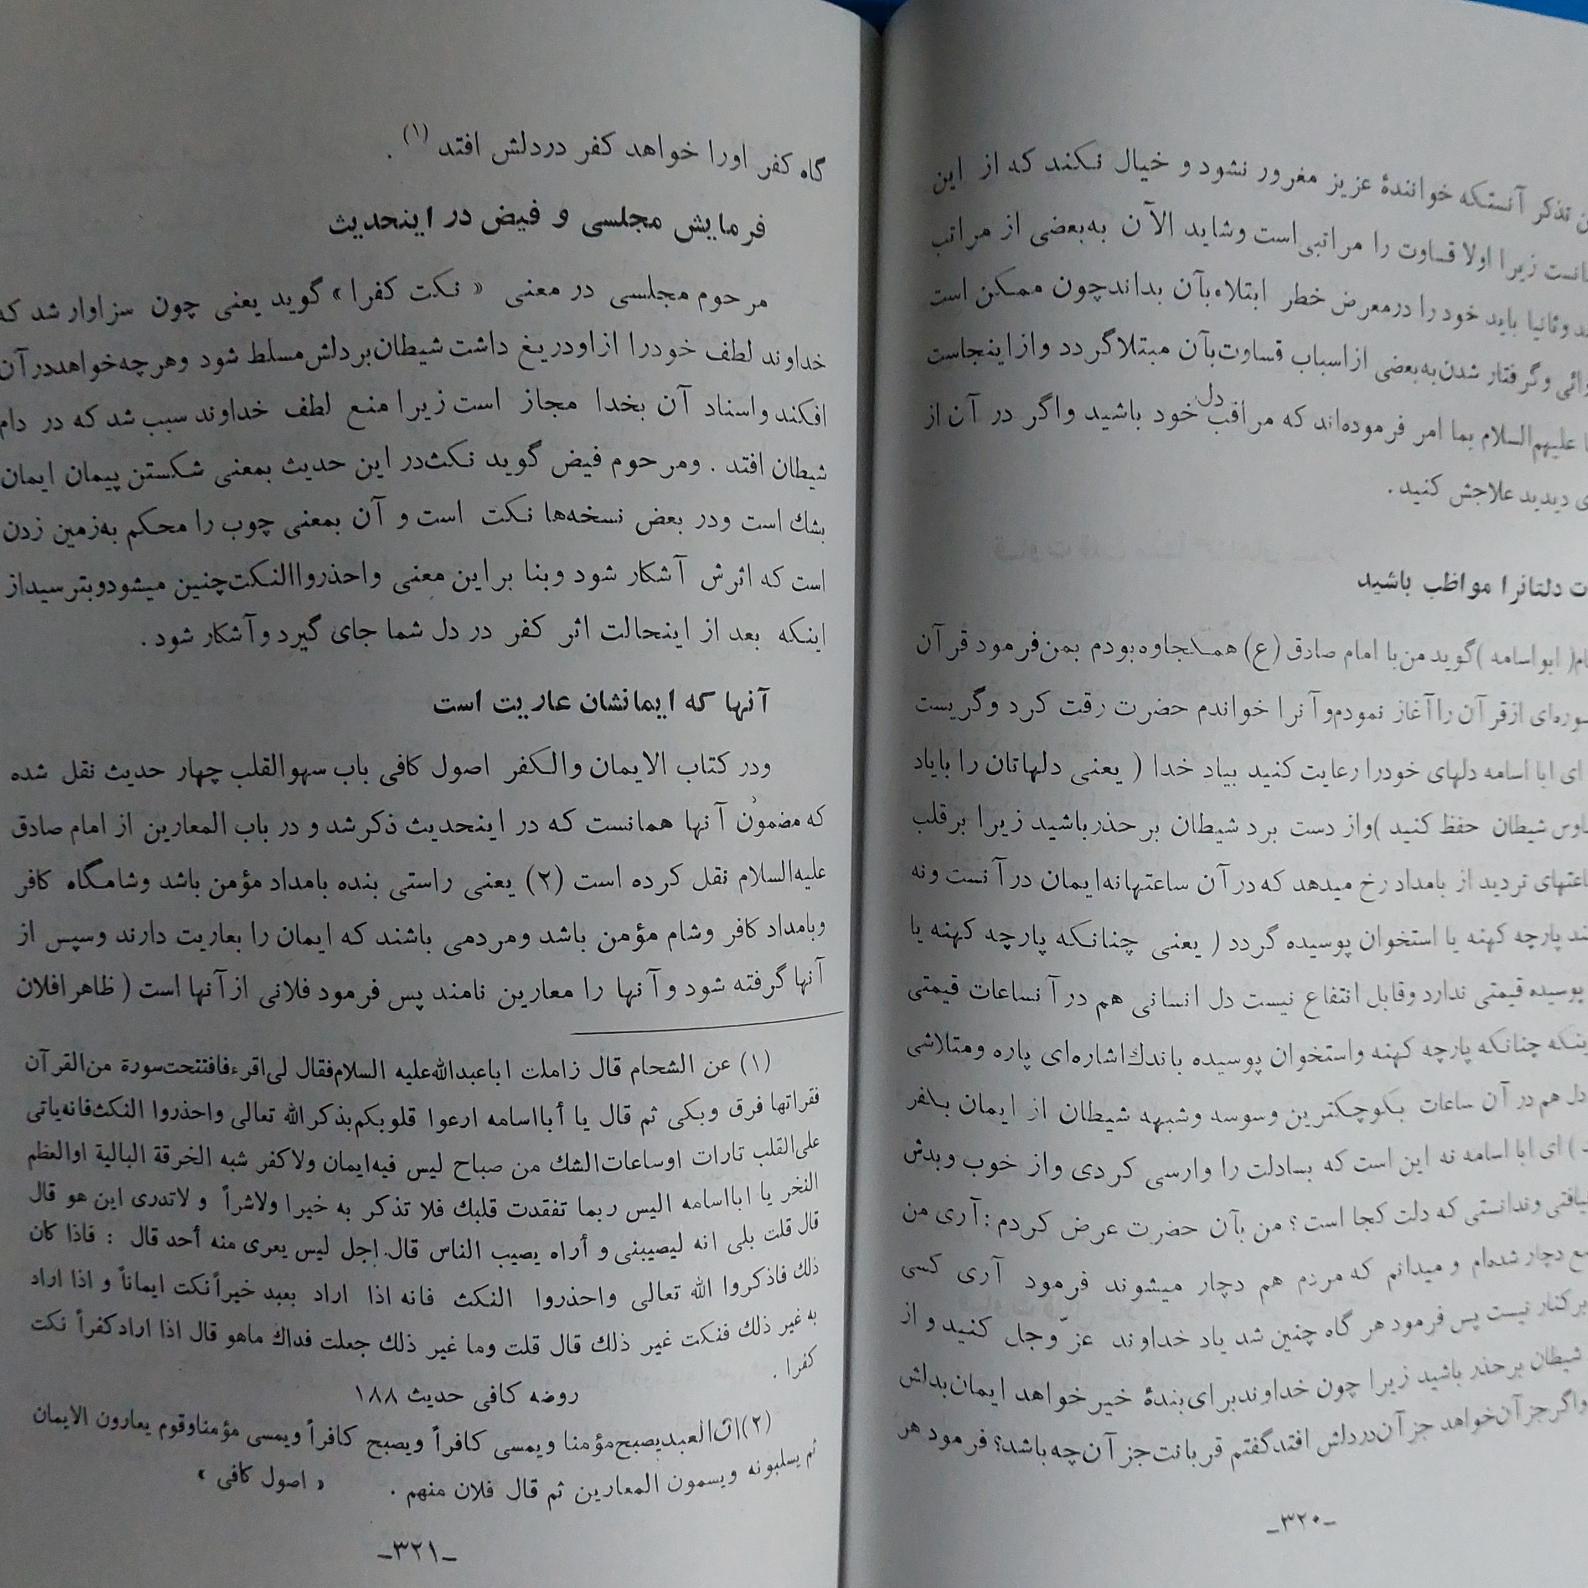 تذکر آنستکه خوانندهٔ عزیز مغرور نشود و خیال نکند که از این
زیرا اولا قساوت را مراتبی است وشاید الآن به‌بعضی از مراتب
وثانیا باید خود را درمعرض خطر ابتلاء بآن بداند چون ممکن است
وگرفتار شدن به‌بعضی از اسباب قساوت بآن مبتلا گردد واز اینجاست
علیهم‌السلام بما امر فرموده‌اند که مراقب دل خود باشید واگر در آن از
دیدید علاجش کنید .
دلتانرا مواظب باشید
( ابواسامه ) گوید من با امام صادق (ع) همکجاوه بودم بمن فرمود قرآن
سوره‌ای از قرآن را آغاز نمودم و آنرا خواندم حضرت رقت کرد وگریست
ای ابا اسامه دلهای خودرا رعایت کنید بیاد خدا ( یعنی دلهاتان را بایاد
شیطان حفظ کنید ) واز دست برد شیطان بر حذر باشید زیرا بر قلب
ساعتهای تردید از بامداد رخ میدهد که در آن ساعتها نه ایمان در آنست ونه
پارچه کهنه یا استخوان پوسیده گردد ( یعنی چنانکه پارچه کهنه یا
پوسیده قیمتی ندارد وقابل انتفاع نیست دل انسانی هم در آنساعات قیمتی
چنانکه پارچه کهنه واستخوان پوسیده باندك اشاره‌ای پاره ومتلاشی
دل هم در آن ساعات بکوچکترین وسوسه وشبهه شیطان از ایمان بکفر
) ای ابا اسامه نه این است که بسا دلت را وارسی کردی واز خوب وبدش
نیافتی وندانستی که دلت کجا است ؟ من بآن حضرت عرض کردم : آری من
دچار شده‌ام و میدانم که مردم هم دچار میشوند فرمود آری کسی
برکنار نیست پس فرمود هر گاه چنین شد یاد خداوند عزّوجل کنید و از
شیطان بر حذر باشید زیرا چون خداوند برای بندهٔ خیر خواهد ایمان بدلش
واگر جز آن خواهد جز آن در دلش افتد گفتم قربانت جز آن چه باشد؟ فرمود هر
-۳۲۰-
گاه کفر اورا خواهد کفر دردلش افتد (۱) .
فرمایش مجلسی و فیض در اینحدیث
مرحوم مجلسی در معنی « نکت کفرا » گوید یعنی چون سزاوار شد که
خداوند لطف خودرا از او دریغ داشت شیطان بر دلش مسلط شود وهرچه خواهد در آن
افکند واسناد آن بخدا مجاز است زیرا منع لطف خداوند سبب شد که در دام
شیطان افتد . ومرحوم فیض گوید نکث در این حدیث بمعنی شکستن پیمان ایمان
بشك است ودر بعض نسخه‌ها نکت است و آن بمعنی چوب را محکم به‌زمین زدن
است که اثرش آشکار شود وبنا براین معنی واحذروا النکت چنین میشود وبترسید از
اینکه بعد از اینحالت اثر کفر در دل شما جای گیرد وآشکار شود .
آنها که ایمانشان عاریت است
ودر کتاب الایمان والکفر اصول کافی باب سهو القلب چهار حدیث نقل شده
که مضمون آنها همانست که در اینحدیث ذکر شد و در باب المعارین از امام صادق
علیه‌السلام نقل کرده است (۲) یعنی راستی بنده بامداد مؤمن باشد وشامگاه کافر
وبامداد کافر وشام مؤمن باشد ومردمی باشند که ایمان را بعاریت دارند وسپس از
آنها گرفته شود و آنها را معارین نامند پس فرمود فلانی از آنها است ( ظاهرا فلان
(۱) عن الشحام قال زاملت اباعبدالله علیه السلام فقال لی اقرء فافتتحت سورة من القرآن
فقراتها فرق وبکی ثم قال یا أبا اسامه ارعوا قلوبکم بذکر الله تعالی واحذروا النکث فانه یاتی
علی القلب تارات اوساعات الشك من صباح لیس فیه ایمان ولا کفر شبه الخرقة البالیة او العظم
النخر یا ابا اسامه الیس ربما تفقدت قلبك فلا تذکر به خیرا ولا شراً و لا تدری این هو قال
قال قلت بلی انه لیصیبنی و أراه یصیب الناس قال اجل لیس یعری منه أحد قال : فاذا کان
ذلك فاذکروا الله تعالی واحذروا النکث فانه اذا اراد بعبد خیراً نکت ایماناً و اذا اراد
به غیر ذلك فنکت غیر ذلك قال قلت وما غیر ذلك جعلت فداك ماهو قال اذا اراد کفراً نکت
کفرا .
روضه کافی حدیث ۱۸۸
(۲) ان العبد یصبح مؤمنا ویمسی کافراً ویصبح کافراً ویمسی مؤمنا وقوم یعارون الایمان
ثم یسلبونه ویسمون المعارین ثم قال فلان منهم . « اصول کافی »
-۳۲۱-